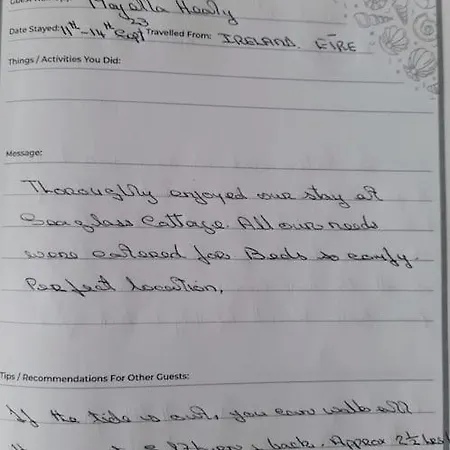 Majella Healy
Date Stayed: 11th - 14th Sept 23 Travelled From: IRELAND. EIRE
Things / Activities You Did:
Message:
Thoroughly enjoyed our stay at
Seaglass Cottage. All our needs
were catered for Beds so comfy.
Perfect location.
Tips / Recommendations For Other Guests:
If the tide is out, you can walk all
back. Approx 2½ hrs